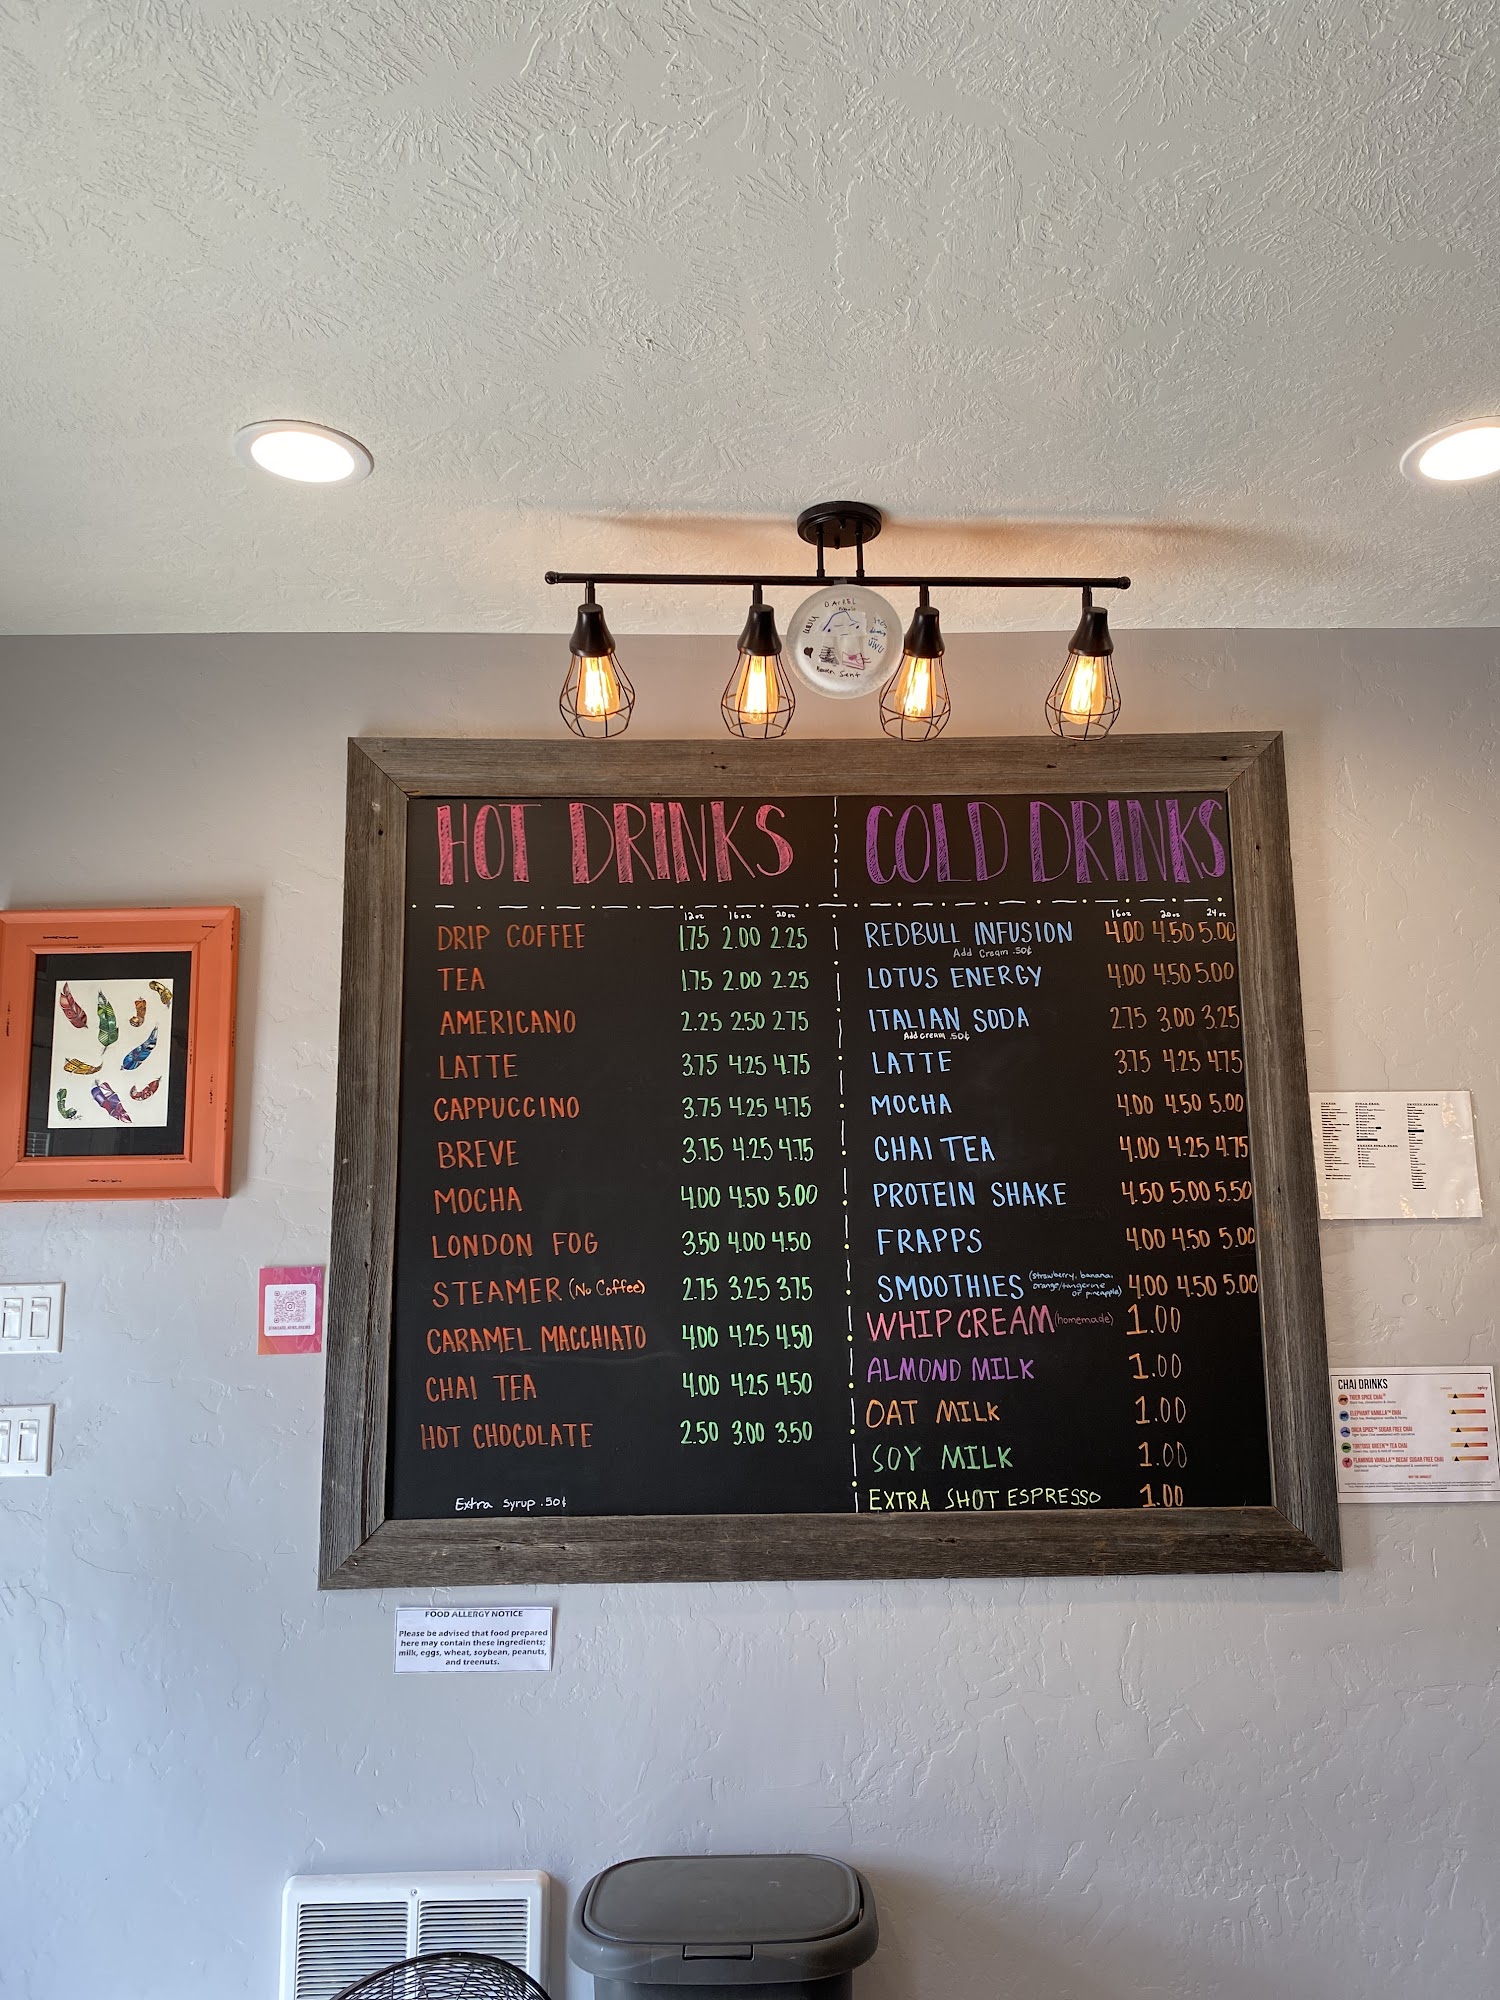 HOT DRINKS
12oz 16oz 20oz
DRIP COFFEE 1.75 2.00 2.25
TEA 1.75 2.00 2.25
AMERICANO 2.25 2.50 2.75
LATTE 3.75 4.25 4.75
CAPPUCCINO 3.75 4.25 4.75
BREVE 3.75 4.25 4.75
MOCHA 4.00 4.50 5.00
LONDON FOG 3.50 4.00 4.50
STEAMER (No Coffee) 2.75 3.25 3.75
CARAMEL MACCHIATO 4.00 4.25 4.50
CHAI TEA 4.00 4.25 4.50
HOT CHOCOLATE 2.50 3.00 3.50
Extra syrup .50¢
COLD DRINKS
16oz 20oz 24oz
REDBULL INFUSION 4.00 4.50 5.00
Add Cream .50¢
LOTUS ENERGY 4.00 4.50 5.00
ITALIAN SODA 2.75 3.00 3.25
Add cream .50¢
LATTE 3.75 4.25 4.75
MOCHA 4.00 4.50 5.00
CHAI TEA 4.00 4.25 4.75
PROTEIN SHAKE 4.50 5.00 5.50
FRAPPS 4.00 4.50 5.00
SMOOTHIES (strawberry, banana, orange/tangerine or pineapple) 4.00 4.50 5.00
WHIP CREAM (homemade) 1.00
ALMOND MILK 1.00
OAT MILK 1.00
SOY MILK 1.00
EXTRA SHOT ESPRESSO 1.00
FOOD ALLERGY NOTICE
Please be advised that food prepared
here may contain these ingredients;
milk, eggs, wheat, soybean, peanuts,
and treenuts.
CHAI DRINKS
TIGER SPICE CHAI
ELEPHANT VANILLA™ CHAI
ORCA SPICE™ SUGAR FREE CHAI
TORTOISE GREEN™ TEA CHAI
FLAMINGO VANILLA™ DECAF SUGAR FREE CHAI